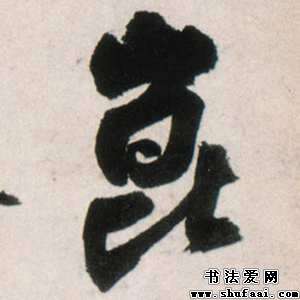 崑
书法爱网
www.shufaai.com